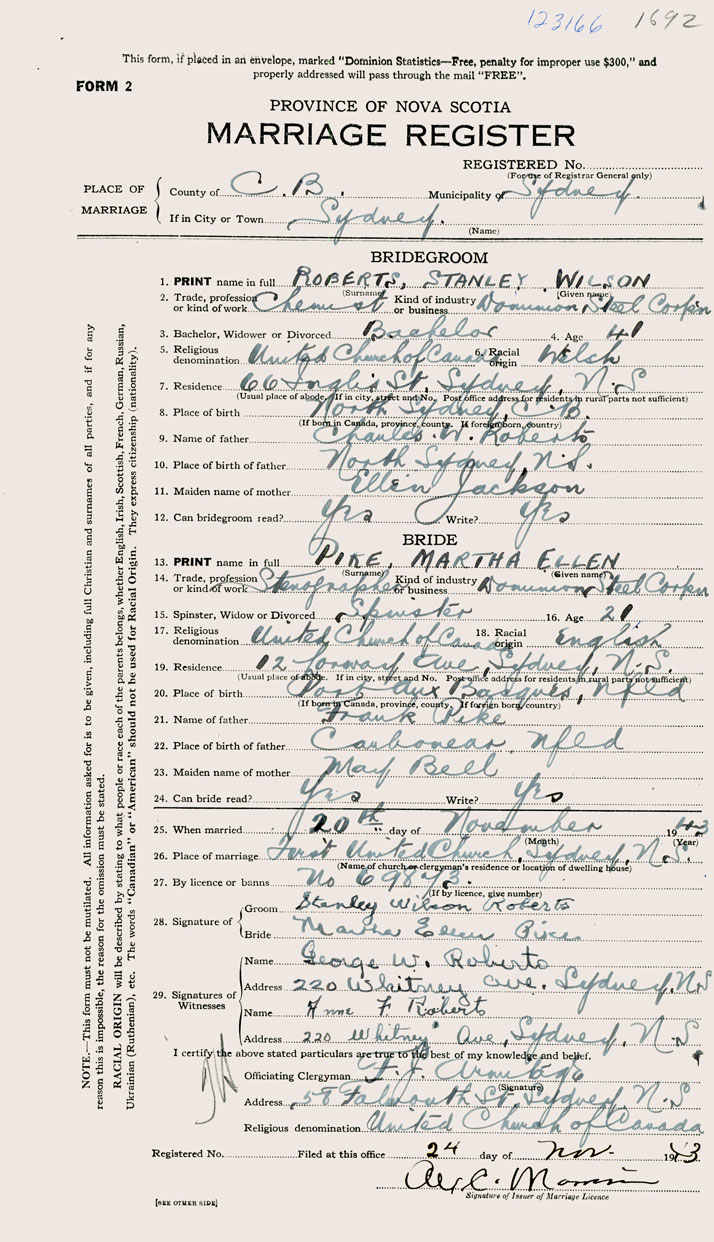 123166 1692
This form, if placed in an envelope, marked "Dominion Statistics—Free, penalty for improper use $300," and
properly addressed will pass through the mail "FREE".
FORM 2
PROVINCE OF NOVA SCOTIA
MARRIAGE REGISTER
REGISTERED No.
(For use of Registrar General only)
PLACE OF MARRIAGE
County of C. B. Municipality of Sydney.
If in City or Town Sydney.
(Name)
BRIDEGROOM
1. PRINT name in full ROBERTS, STANLEY WILSON
(Surname) (Given name)
2. Trade, profession or kind of work Chemist Kind of industry or business Dominion Steel Corp'n
3. Bachelor, Widower or Divorced Bachelor 4. Age 41
5. Religious denomination United Church of Canada 6. Racial origin Welsh
7. Residence 66 Inglis St, Sydney, N.S
(Usual place of abode. If in city, street and No. Post office address for residents in rural parts not sufficient)
8. Place of birth North Sydney, C.B.
(If born in Canada, province, county. If foreign born, country)
9. Name of father Charles W. Roberts
10. Place of birth of father North Sydney, N.S.
11. Maiden name of mother Ellen Jackson
12. Can bridegroom read? Yes Write? Yes
BRIDE
13. PRINT name in full PIKE, MARTHA ELLEN
(Surname) (Given name)
14. Trade, profession or kind of work Stenographer Kind of industry or business Dominion Steel Corp'n
15. Spinster, Widow or Divorced Spinster 16. Age 21
17. Religious denomination United Church of Canada 18. Racial origin English
19. Residence 12 Ave, Sydney, N.S.
(Usual place of abode. If in city, street and No. Post office address for residents in rural parts not sufficient)
20. Place of birth Port Aux Basques, Nfld
(If born in Canada, province, county. If foreign born, country)
21. Name of father Frank Pike
22. Place of birth of father Carbonear, Nfld
23. Maiden name of mother May Bell
24. Can bride read? Yes Write? Yes
25. When married 20th day of November 1943
(Month) (Year)
26. Place of marriage First United Church, Sydney, N.S.
(Name of church or clergyman's residence or location of dwelling house)
27. By licence or banns No 69873.
(If by licence, give number)
28. Signature of
Groom Stanley Wilson Roberts
Bride Martha Ellen Pike
29. Signatures of Witnesses
Name George W. Roberts
Address 220 Whitney Ave. Sydney, N.S
Name Anne F Roberts
Address 220 Whitney Ave, Sydney, N.S
I certify the above stated particulars are true to the best of my knowledge and belief.
Officiating Clergyman F. J. Armitage
(Signature)
Address 58 Falmouth St, Sydney N.S
Religious denomination United Church of Canada
Registered No. Filed at this office 24 day of Nov. 1943
Signature of Issuer of Marriage Licence
[SEE OTHER SIDE]
NOTE.—This form must not be mutilated. All information asked for is to be given, including full Christian and surnames of all parties, and if for any
reason this is impossible, the reason for the omission must be stated.
RACIAL ORIGIN will be described by stating to what people or race each of the parents belongs, whether English, Irish, Scottish, French, German, Russian,
Ukrainian (Ruthenian), etc. The words "Canadian" or "American" should not be used for Racial Origin. They express citizenship (nationality).